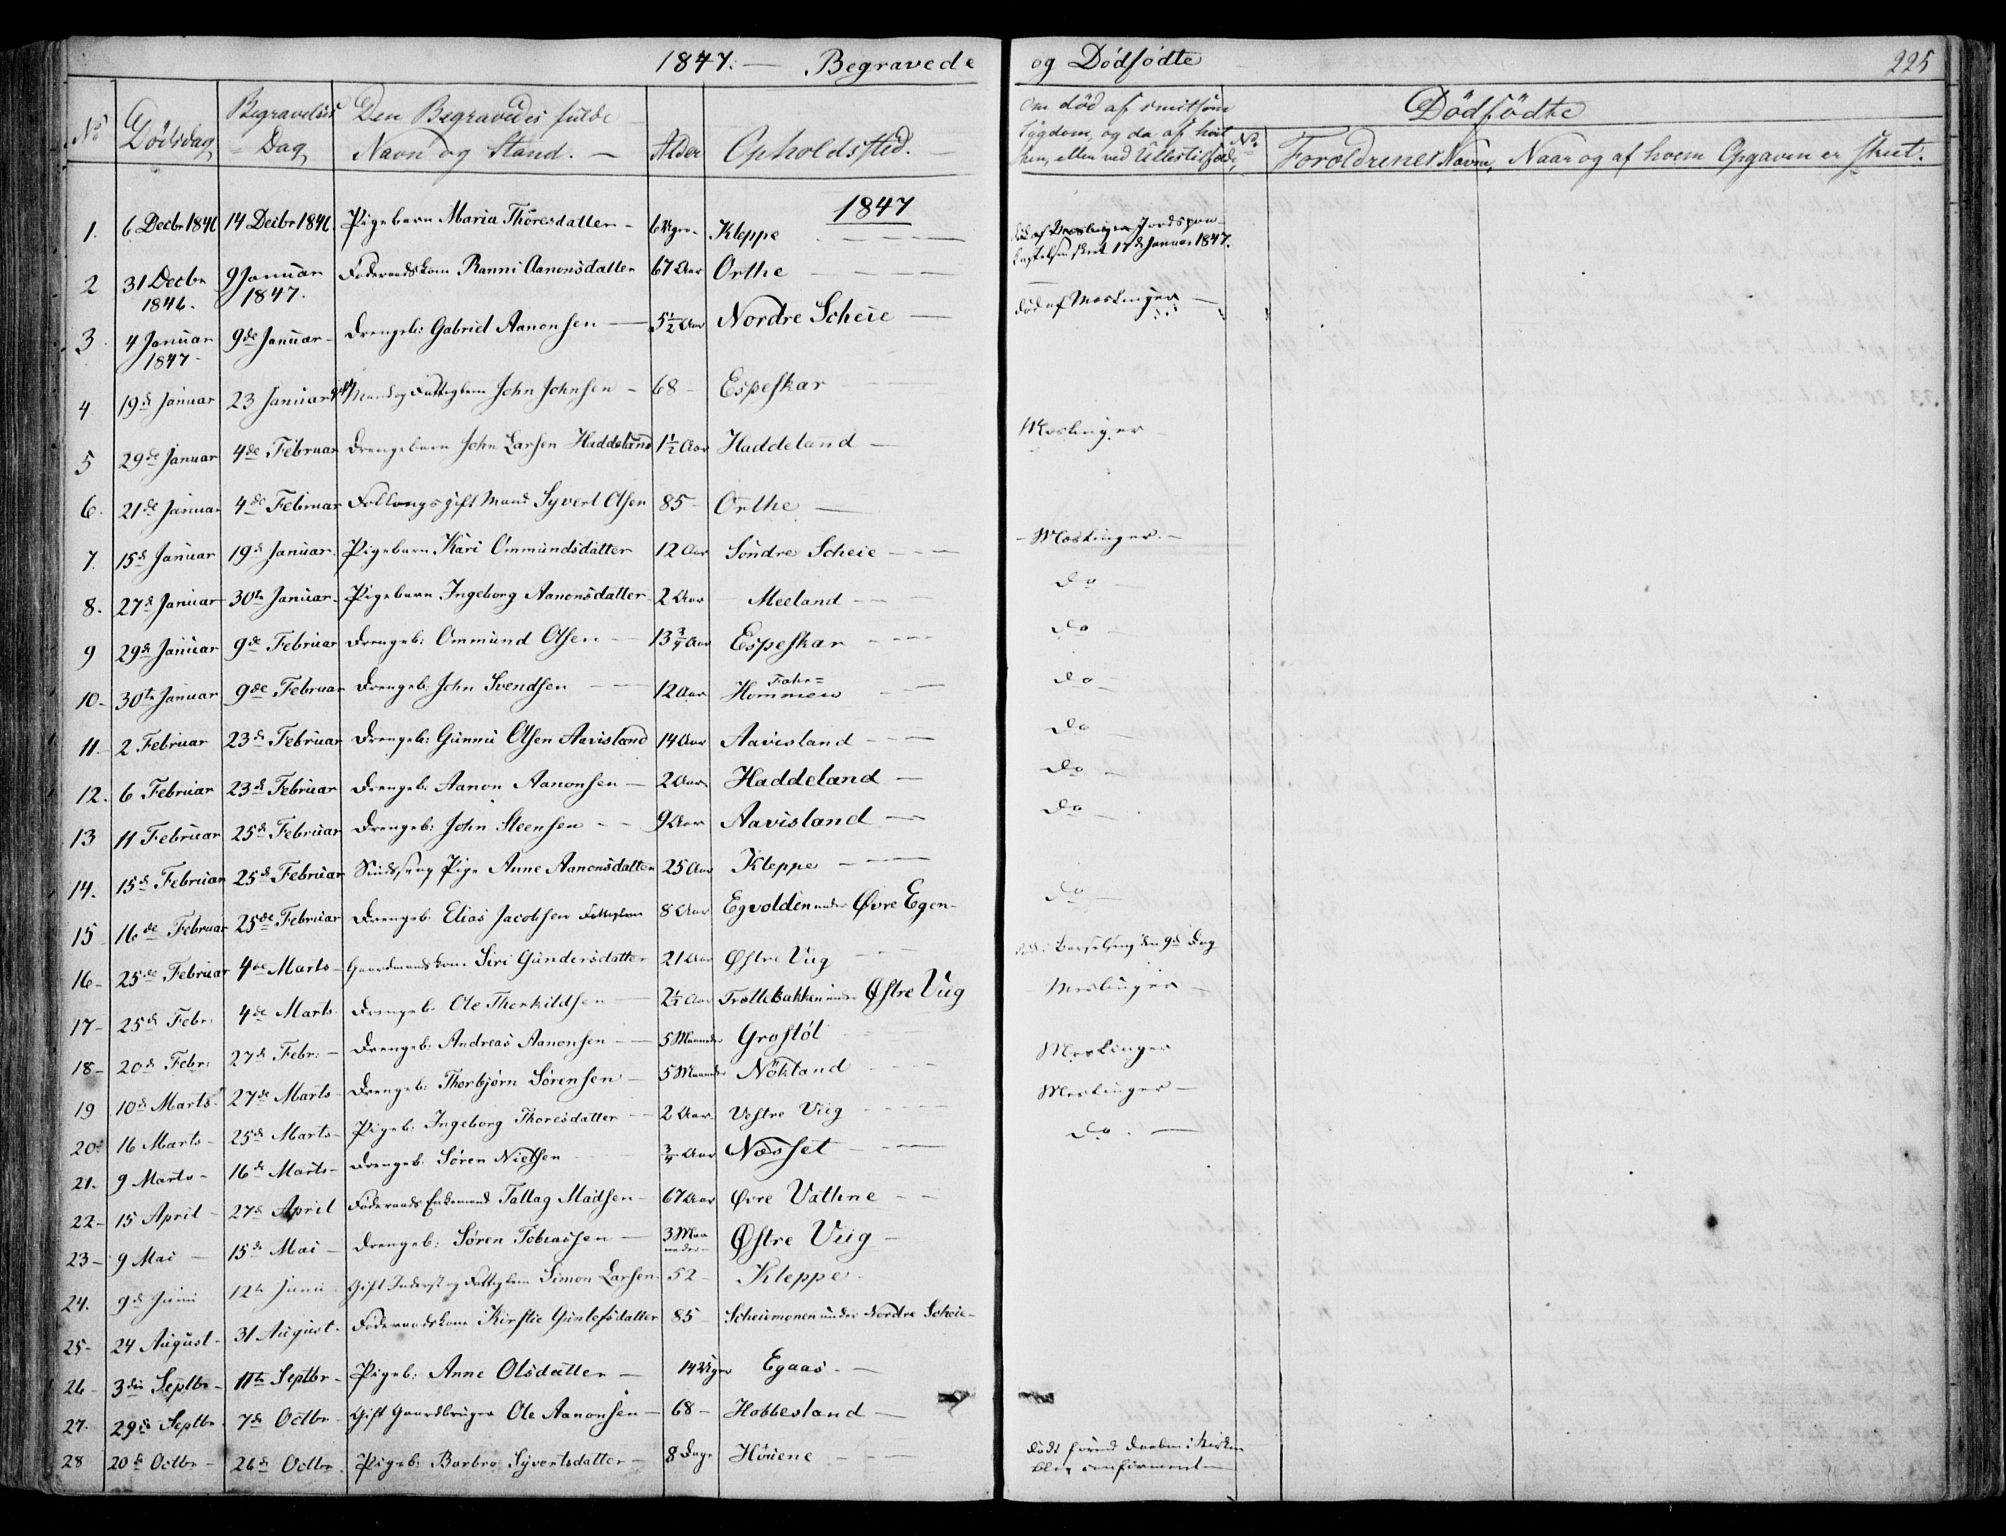 1847. — Begravede og Dödfödte 225
No Dödsdag Begravelses Dag Den Begravedes fulde Navn og Stand. — Alder Opholdssted. —
Om död af smitsom Sygdom, og da af hvilken, eller ved Ulkestilfælde,
Dödfödte
No Forældrenes Navne, Naar og af hvem Opgaven er skeet.
1847
1. 6 Decbr 1846 14 Decbr 1846 Pigebarn Maria Thoresdatter — 6 Uger Kleppe
Jordspaakastelsen skeet 17d Januar 1847.
2 31 Decbr 1846. 9 Januar 1847. Föderaadskone Ranni Aanonsdatter 67 Aar Orthe
3 4 Januar 1847 9de Januar Drengeb: Gabriel Aanonsen — 5½ Aar Nordre Scheie — död af Mæslinger —
4 19d Januar 23 Januar Mand og Fattiglem John Johnsen — 68 — Espeskar
5 29de Januar 4de Februar Drengebarn John Larsen Haddeland 1½ Aar Haddeland — Mæslinger —
6. 21de Januar 4de Februar Mand Syvert Olsen 85 Orthe —
7. 15d Januar 19d Januar Pigebarn Kari Ommundsdatter 12 Aar Söndre Scheie — Mæslinger. —
8. 27d Januar 30te Januar Pigebarn Ingeborg Aanonsdatter 2 Aar Meeland — do
9 29de Januar 9de Februar Drengeb: Ommund Olsen 13¾ Aar Espeskar do
10 30te Januar 9de Februar Drengeb: John Svendsen — 12 Aar Hommen — do
11. 2 Februar 23d Februar Drengeb: Gunnu Olsen Aavisland 14 Aar Aavisland — do
12. 6 Februar 23d Februar Drengeb: Aanon Aanonsen — 2 Aar Haddeland — do
13 11 Februar 25d Februar Drengeb: John Steensen — 9 Aar Aavisland — do
14. 15d Februar 25d Februar Pige Anne Aanonsdatter 25 Aar Kleppe
15 16de Februar 25de Februar Drengeb: Elias Jacobsen Fattiglem 8 Aar Egvolden under Øvre Egen — do
16 25de Februar 4de Marts — Gaardmandskone Siri Gundersdatter 21 Aar Østre Vüg — 9d Dag
17 25d Febr: 4de Marts Drengeb. Ole Therkildsen — 2½ Aar Trollebakken under Østre Vüg Mæslinger —
18 20d Febr: 27d Febr: — Drengeb: Andreas Aanonsen — 5 Maaneder Grostöl Mæslinger
19 10d Marts 27de Marts — Drengeb: Thorbjörn Sörensen — 5 Maaneder Nökland Mæslinger —
20 16 Marts — 25d Marts — Pigeb: Ingeborg Thoresdatter — 2 Aar Vestre Vüg do. —
21. 9 Marts — 16d Marts — Drengeb. Sören Nielsen ¾ Aar Næsset —
22 15 April 27d April Föderaads Enkemand Tallag Madsen — 67 Aar Øvre Vatne
23 9 Mai — 15d Mai — Drengeb: Sören Tobiassen — 3 Maaneder Østre Vüg —
24. 9d Juni 12te Juni Gift Inderst og Fattiglem Simon Larsen 52 — Kleppe.
25 24 August 31 August. Föderaadskone Kirstie Guntofsdatter 85 Scheiemonen under Nordre Scheie —
26 3die Septbr — 11te Septbr — Pigeb: Anne Olsdatter — 14 Uger Egaas. —
27. 29de Septbr 7de Octbr — Gift Gaardbruger Ole Aanonsen — 68 — Hobbesland —
28 20d Octbr — 26d Octbr Pigeb: Barbro Syvertsdatter — 8 Dage Höiene